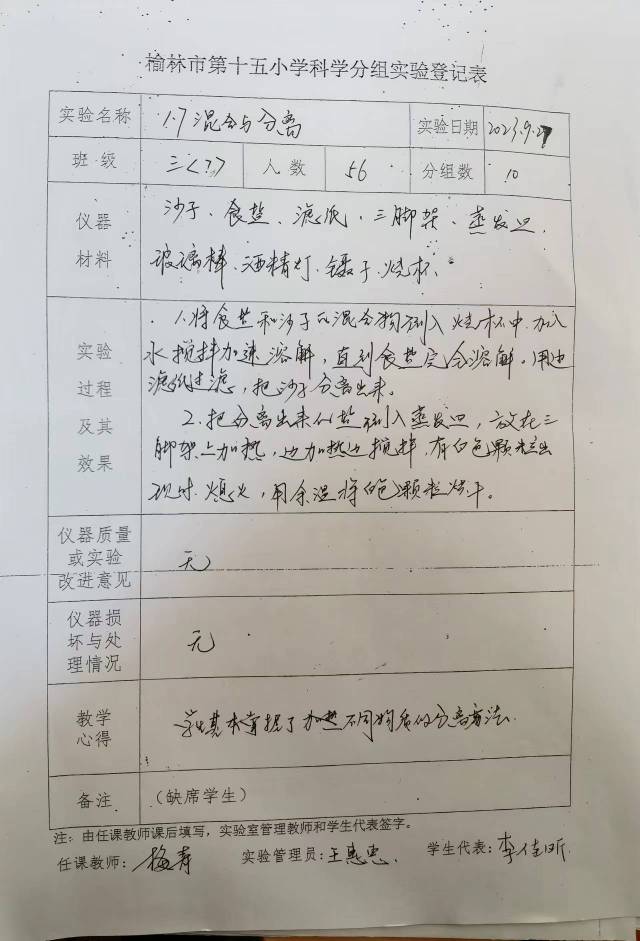 榆林市第十五小学科学分组实验登记表
实验名称 1.7 混合与分离 实验日期 2023.9.27
班 级 三<7> 人 数 56 分组数 10
仪器 沙子、食盐、滤纸、三脚架、蒸发皿
材料 玻璃棒、酒精灯、镊子、烧杯、
1.将食盐和沙子的混合物倒入烧杯中加入
实验 水搅拌加速溶解,直到食盐完全溶解。用
过程 滤纸过滤,把沙子分离出来。
及其 2.把分离出来的盐倒入蒸发皿,放在三
效果 脚架上加热,边加热边搅拌,有白色颗粒出
现时熄火,用余温将白色颗粒烘干。
仪器质量
或实验 无
改进意见
仪器损
坏与处 无
理情况
教学 学生基本掌握了加热不同物质的分离方法.
心得
备注 (缺席学生)
注:由任课教师课后填写,实验室管理教师和学生代表签字。
任课教师: 梅青 实验管理员: 王惠忠. 学生代表: 李佳昕